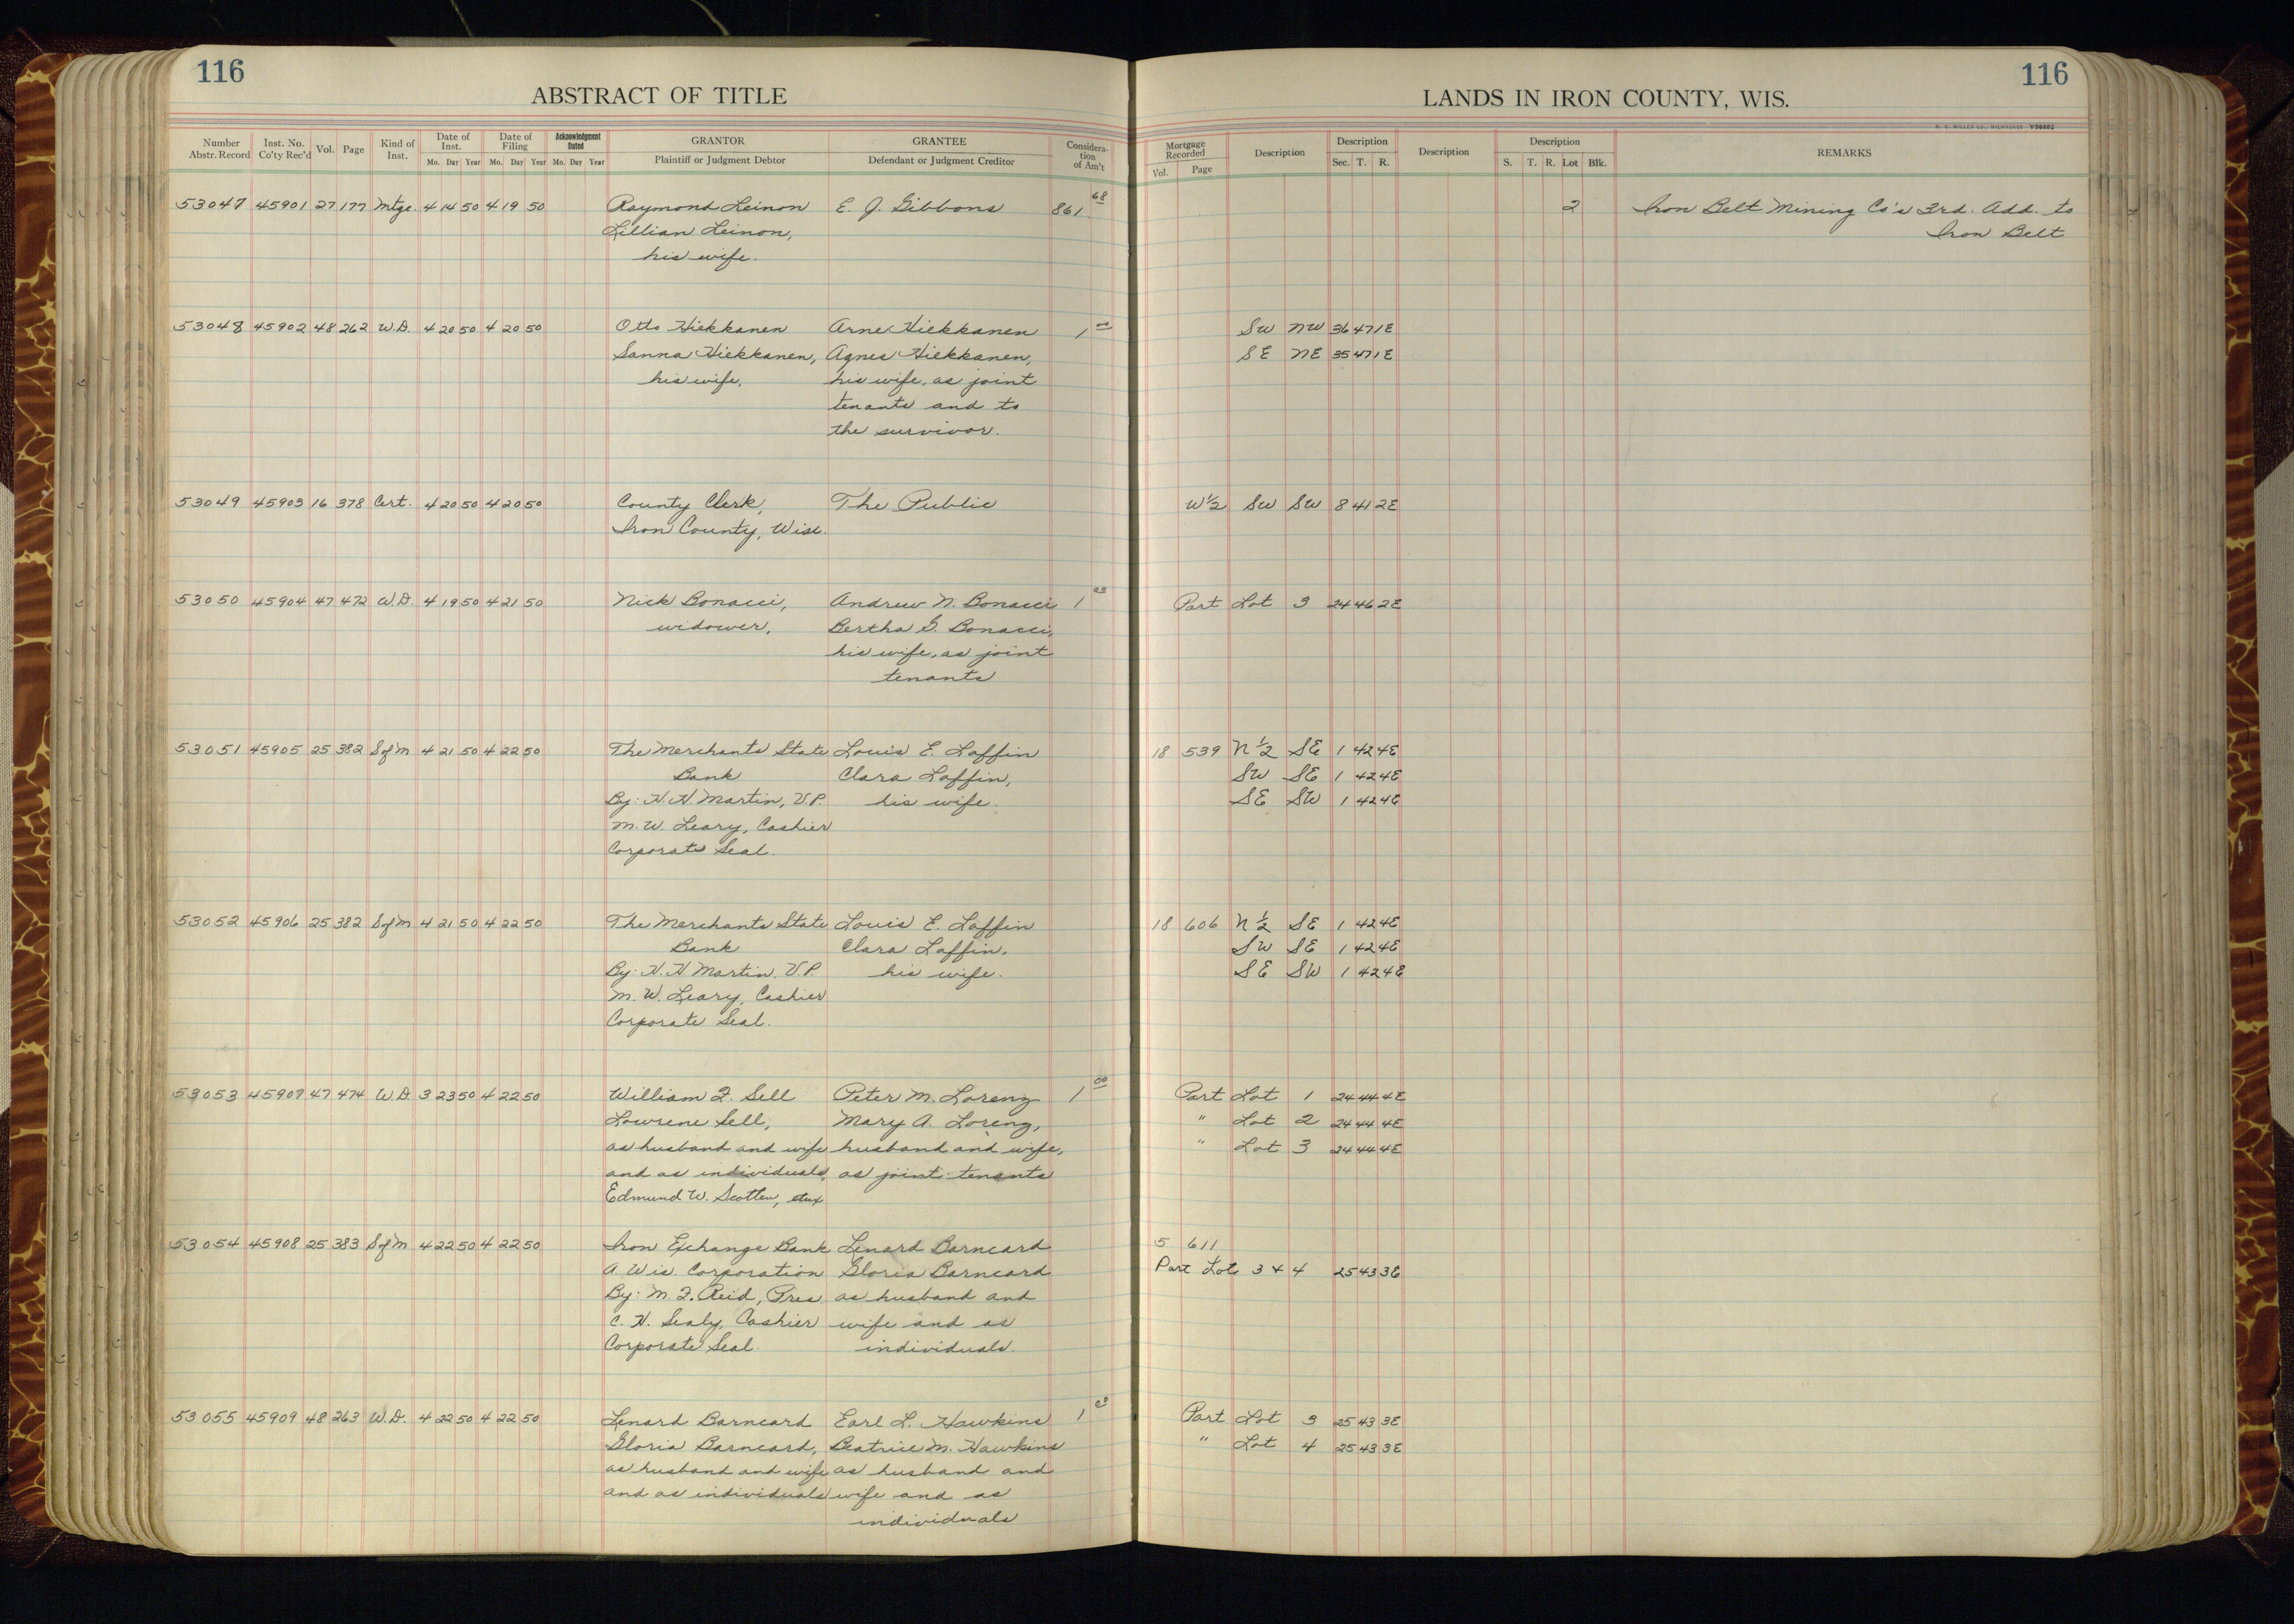 116
ABSTRACT OF TITLE
Number Abstr. Record | Inst. No. Co'ty Rec'd | Vol. | Page | Kind of Inst. | Date of Inst. Mo. Day Year | Date of Filing Mo. Day Year | Acknowledgment Dated Mo. Day Year | GRANTOR Plaintiff or Judgment Debtor | GRANTEE Defendant or Judgment Creditor | Consideration of Am't
53047 45901 27 177 Mtge. 4 14 50 4 19 50 Raymond Leinon E. J. Gibbons 861 68
Lillian Leinon,
his wife.
53048 45902 48 262 W.D. 4 20 50 4 20 50 Otto Hiekkanen Arne Hiekkanen 1 00
Sanna Hiekkanen, Agnes Hiekkanen,
his wife, his wife, as joint
tenants and to
the survivor.
53049 45903 16 378 Cert. 4 20 50 4 20 50 County Clerk, The Public
Iron County, Wisc.
53050 45904 47 472 W.D. 4 19 50 4 21 50 Nick Bonacci, Andrew N. Bonacci 1 00
widower, Bertha G. Bonacci,
his wife, as joint
tenants
53051 45905 25 382 S of M 4 21 50 4 22 50 The Merchants State Louis E. Laffin
Bank Clara Laffin,
By: H. H. Martin, V.P. his wife.
M. W. Leary, Cashier
Corporate Seal.
53052 45906 25 382 S of M 4 21 50 4 22 50 The Merchants State Louis E. Laffin
Bank Clara Laffin,
By: H. H. Martin, V.P. his wife.
M. W. Leary, Cashier
Corporate Seal.
53053 45907 47 474 W.D. 3 23 50 4 22 50 William F. Sell Peter M. Lorenz 1 00
Lowrene Sell, Mary A. Lorenz,
as husband and wife husband and wife,
and as individuals, as joint tenants
Edmund W. Scotten, etux
53054 45908 25 383 S of M 4 22 50 4 22 50 Iron Exchange Bank Lenard Barneard
A Wis. Corporation Gloria Barneard
By: M. F. Reid, Pres. as husband and
C. H. Sealy, Cashier wife and as
Corporate Seal. individuals.
53055 45909 48 263 W.D. 4 22 50 4 22 50 Lenard Barneard Earl L. Hawkins 1 00
Gloria Barneard, Beatrice M. Hawkins
as husband and wife as husband and
and as individuals wife and as
individuals
116
LANDS IN IRON COUNTY, WIS.
H. C. MILLER CO., MILWAUKEE Y56882
Mortgage Recorded Vol. Page | Description | Description Sec. T. R. | Description | Description S. T. R. Lot Blk. | REMARKS
2 Iron Belt Mining Co's 3rd. Add. to
Iron Belt
SW NW 36 47 1E
SE NE 35 47 1E
W½ SW SW 8 41 2E
Part Lot 3 24 46 2E
18 539 N½ SE 1 42 4E
SW SE 1 42 4E
SE SW 1 42 4E
18 606 N½ SE 1 42 4E
SW SE 1 42 4E
SE SW 1 42 4E
Part Lot 1 24 44 4E
" Lot 2 24 44 4E
" Lot 3 24 44 4E
5 611
Part Lots 3 & 4 25 43 3E
Part Lot 3 25 43 3E
" Lot 4 25 43 3E